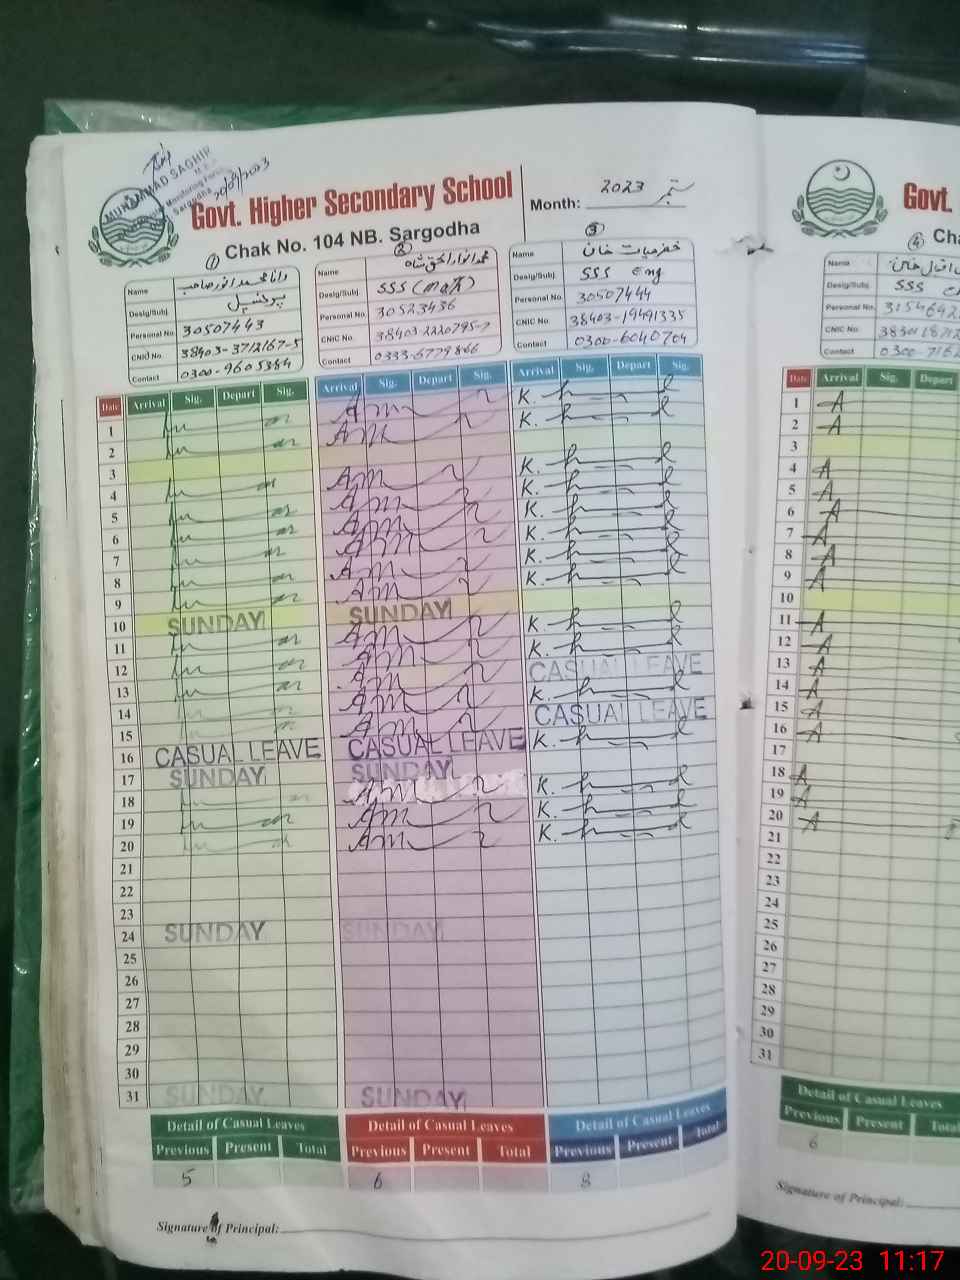 MUHAMMAD SAGHIR
Sargodha
20/09/2023
Govt. Higher Secondary School
Month: 2023 ستمبر
Chak No. 104 NB. Sargodha
1
Name رانا محمد انور صاحب
Desig/Subj. پرنسپل
Personal No. 30507443
CNIC No. 38403-3712167-5
Contact 0300-9605384
2
Name
Desig/Subj. SSS (math)
Personal No. 30523436
CNIC No. 38403-2220795-7
Contact 0333-6779866
3
Name خضر حیات خان
Desig/Subj. SSS Eng
Personal No. 30507444
CNIC No. 38403-19491335
Contact 0300-6040704
Date Arrival Sig. Depart Sig. Arrival Sig. Depart Sig. Arrival Sig. Depart Sig.
1
2
3
4
5
6
7
8
9
10 SUNDAY SUNDAY
11
12 CASUAL LEAVE
13
14 CASUAL LEAVE
15
16 CASUAL LEAVE CASUAL LEAVE
17 SUNDAY SUNDAY
18
19
20
21
22
23
24 SUNDAY SUNDAY
25
26
27
28
29
30
31 SUNDAY SUNDAY
Detail of Casual Leaves Detail of Casual Leaves Detail of Casual Leaves
Previous Present Total Previous Present Total Previous Present Total
5 6 8
Signature of Principal:
Govt.
4
Name
Desig/Subj. SSS
Personal No.
CNIC No.
Contact
Date Arrival Sig. Depart
1 A
2 A
3
4 A
5 A
6 A
7 A
8 A
9 A
10
11 A
12 A
13 A
14 A
15 A
16 A
17
18 A
19 A
20 A
21
22
23
24
25
26
27
28
29
30
31
Detail of Casual Leaves
Previous Present Total
6
Signature of Principal:
20-09-23 11:17